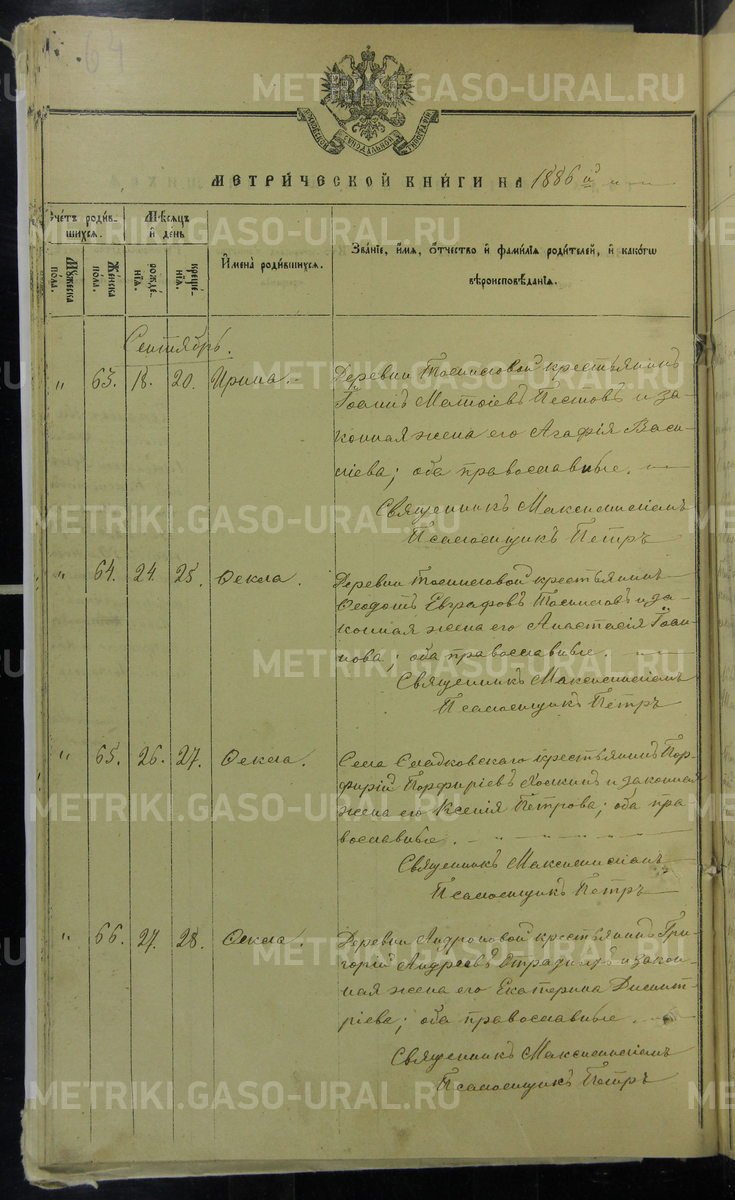 64
METRIKI.GASO-URAL.RU
МОСКОВСКОЙ СѴНОДАЛЬНОЙ ТИПОГРАФІИ
МЕТРИ́ЧЕСКОЙ КНИ́ГИ НА 1886 й
Сче́тъ роди́в-
шихся.
Мѣ́сяцъ
и҆ де́нь
Му́жеска
по́ла.
Же́нска
по́ла.
рожде́-
нїѧ.
креще́-
нїѧ.
И҆мена̀ роди́вшихся.
Зва́нїе, и҆́мѧ, ѻ҆́тчество и҆ фами́лїѧ роди́телей, и҆ како́гѡ
вѣроисповѣ́данїѧ.
Сентябрь.
" 63. 18. 20. Ирина. Деревни крестьянинъ
Іоаннъ Матѳіевъ Пестовъ и за-
конная жена его Агафія Васи-
ліева; оба православные.
Священникъ Максимиліанъ
Псаломщикъ Петръ
" 64. 24. 25. Ѳекла. Деревни крестьянинъ
Ѳеодотъ Евграфовъ и за-
конная жена его Анастасія Іоан-
нова; оба православные.
Священникъ Максимиліанъ
Псаломщикъ Петръ
" 65. 26. 27. Ѳекла. Села Сладковскаго крестьянинъ Пор-
фирій Порфиріевъ и законная
жена его Ксенія Петрова; оба пра-
вославные.
Священникъ Максимиліанъ
Псаломщикъ Петръ
" 66. 27. 28. Ѳекла. Деревни Андроновой крестьянинъ Гри-
горій Андреевъ Отрадныхъ и закон-
ная жена его Екатерина Димит-
ріева; оба православные.
Священникъ Максимиліанъ
Псаломщикъ Петръ